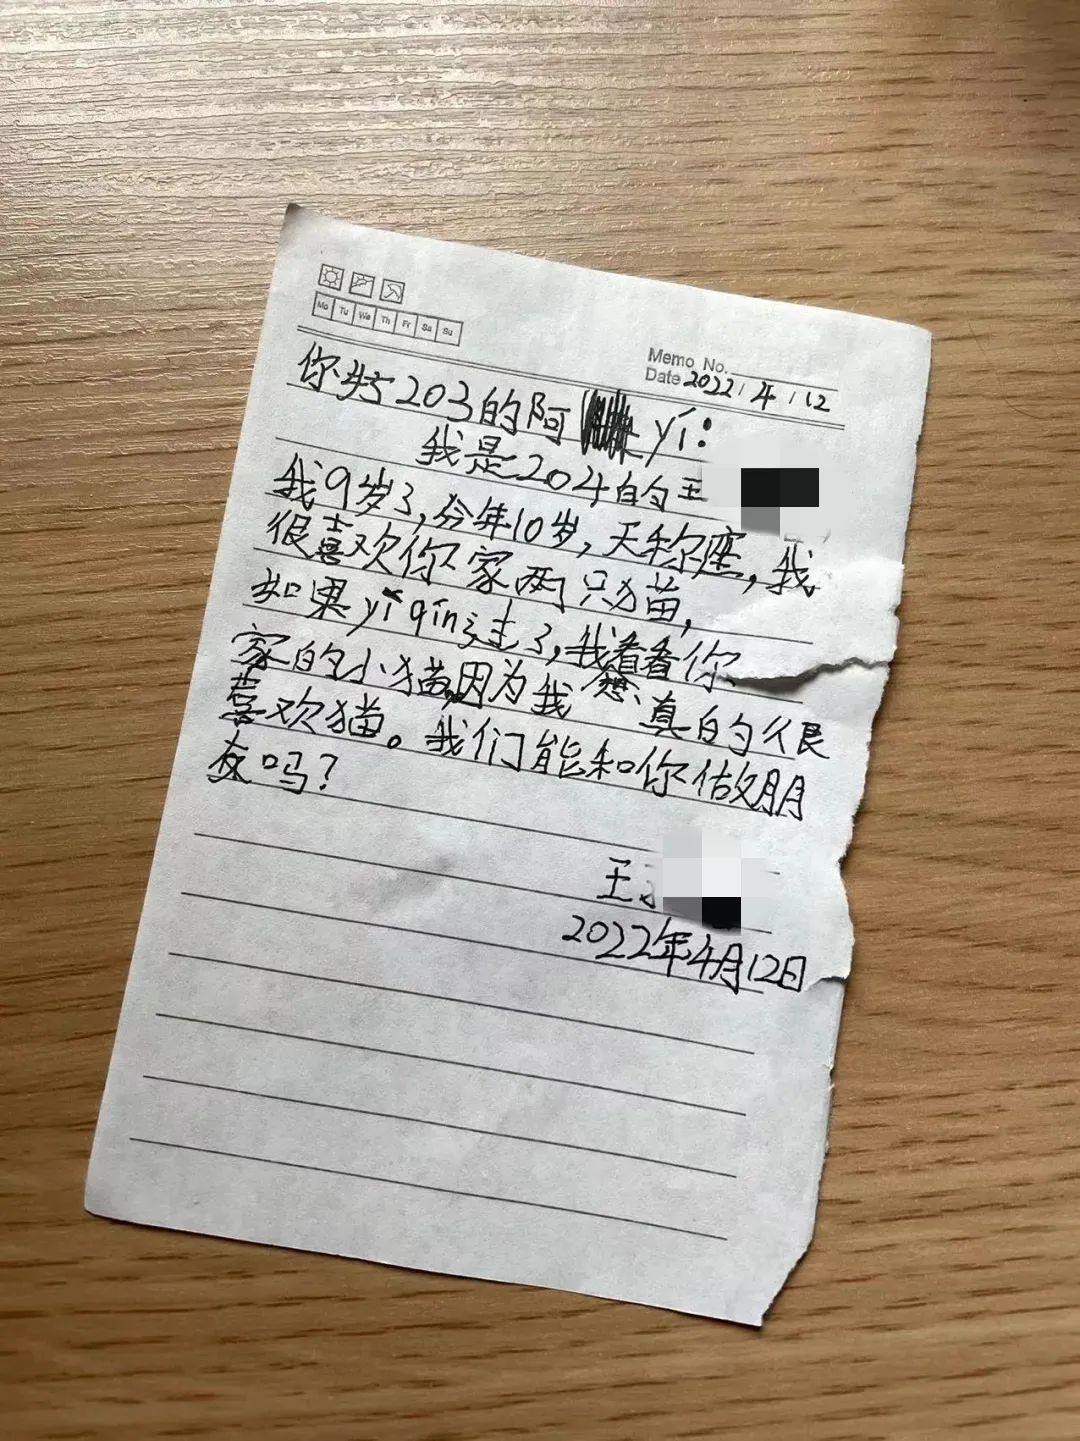 Mo Tu We Th Fr Sa Su
Memo No.
Date 2022 / 4 / 12
你好203的阿 yí：
我是204的王
我9岁了，今年10岁，天秤座，我
很喜欢你家两只猫，
如果yì qíng走了，我想看看你
家的小猫，因为我真的很
喜欢猫。我们能和你做朋
友吗？
王
2022年4月12日